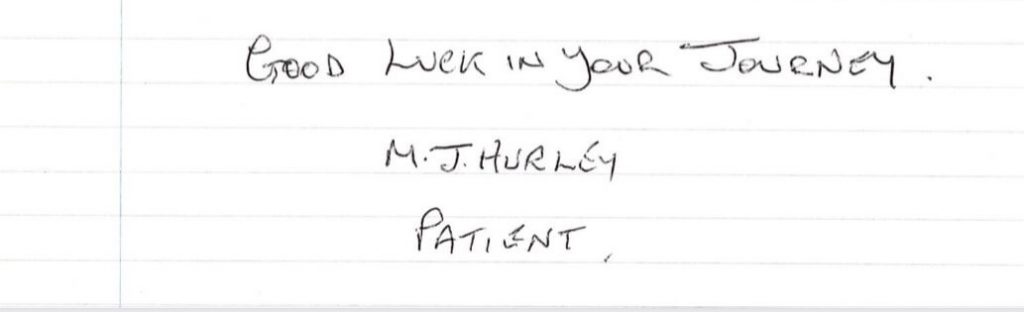 GOOD LUCK IN YOUR JOURNEY.
M.J. HURLEY
PATIENT,